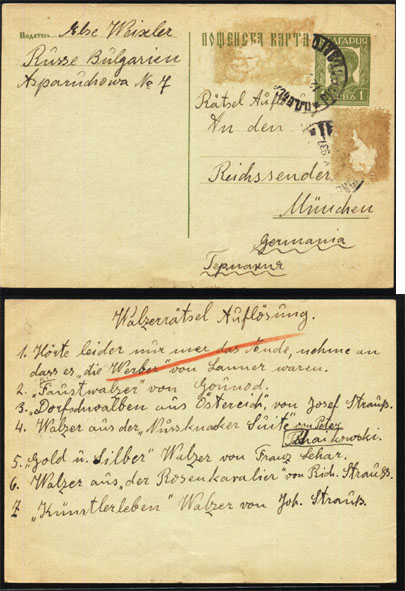 Податель Else Weixler
Russe Bulgarien
Asparuchowa № 7
ПОЩЕНСКА КАРТА
БЪЛГАРИЯ
ЛЕВЪ 1
Rätsel Auflösung
An den
Reichssender
München
Germania
Германия
Walzerrätsel Auflösung.
1. Hörte leider nur mer das Ende, nehme an
dass es „die Werber" von Lanner waren.
2. „Faustwalzer" von Gounod.
3. „Dorfschwalben aus Östereich", von Josef Strauß.
4. Walzer aus der „Nussknacker Suite" von Peter
Tschaikowski.
5. „Gold u. Silber" Walzer von Franz Lehar.
6. Walzer aus „der Rosenkavalier" von Rich. Strauß.
7 „Künstlerleben" Walzer von Joh. Strauß.